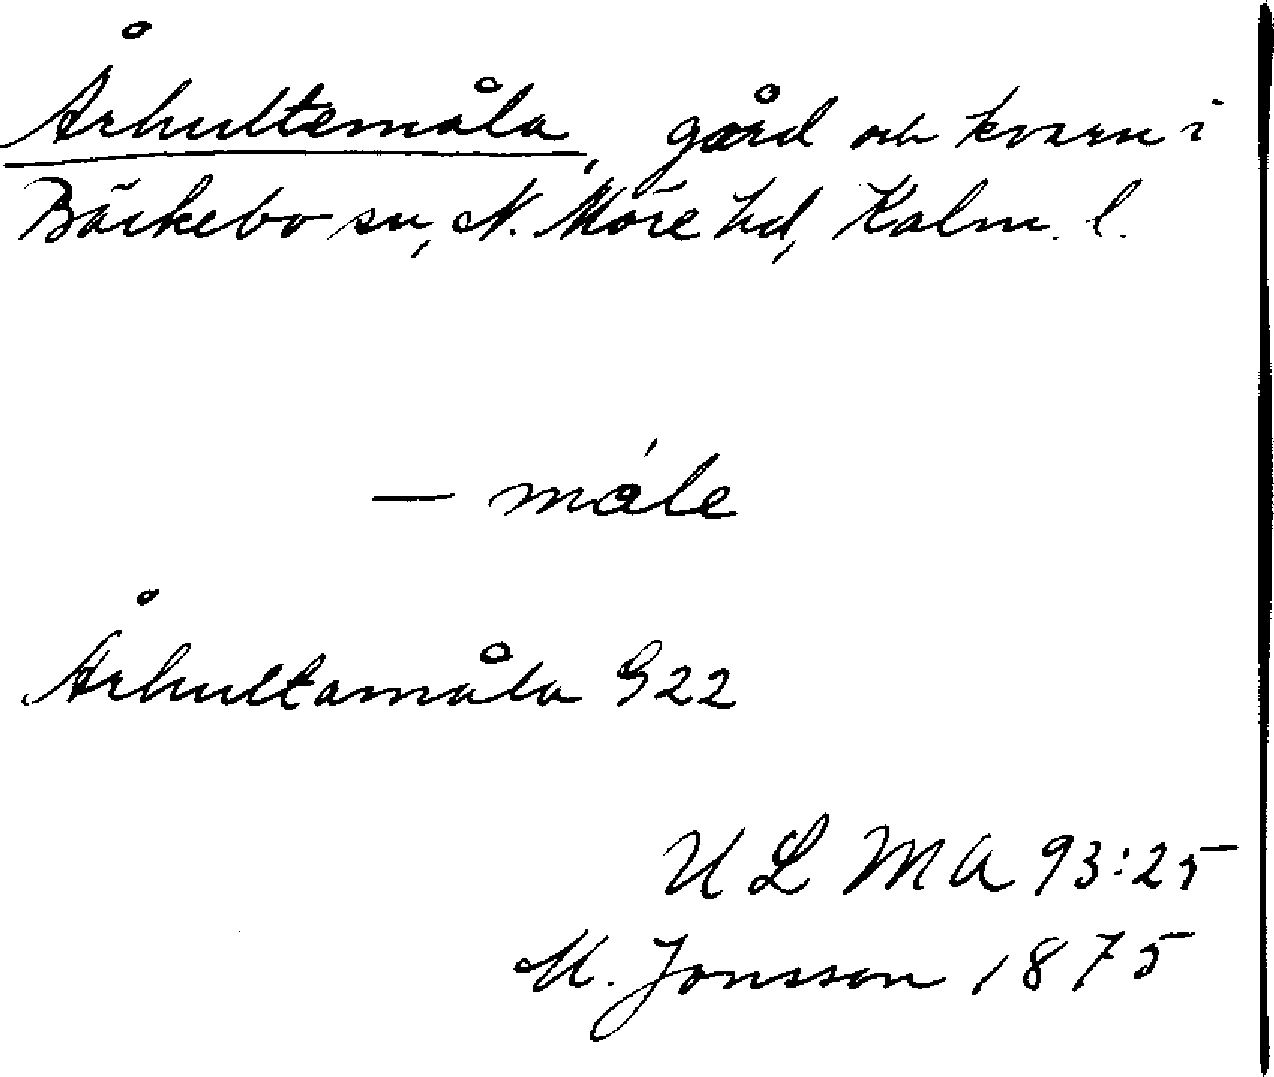 Århultemåla, gård och kvarn i
Bäckebo sn, N. Möre hd, Kalm. l.
— måle
Århultamåla S22
ULMA 93:25
M. Jonsson 1875